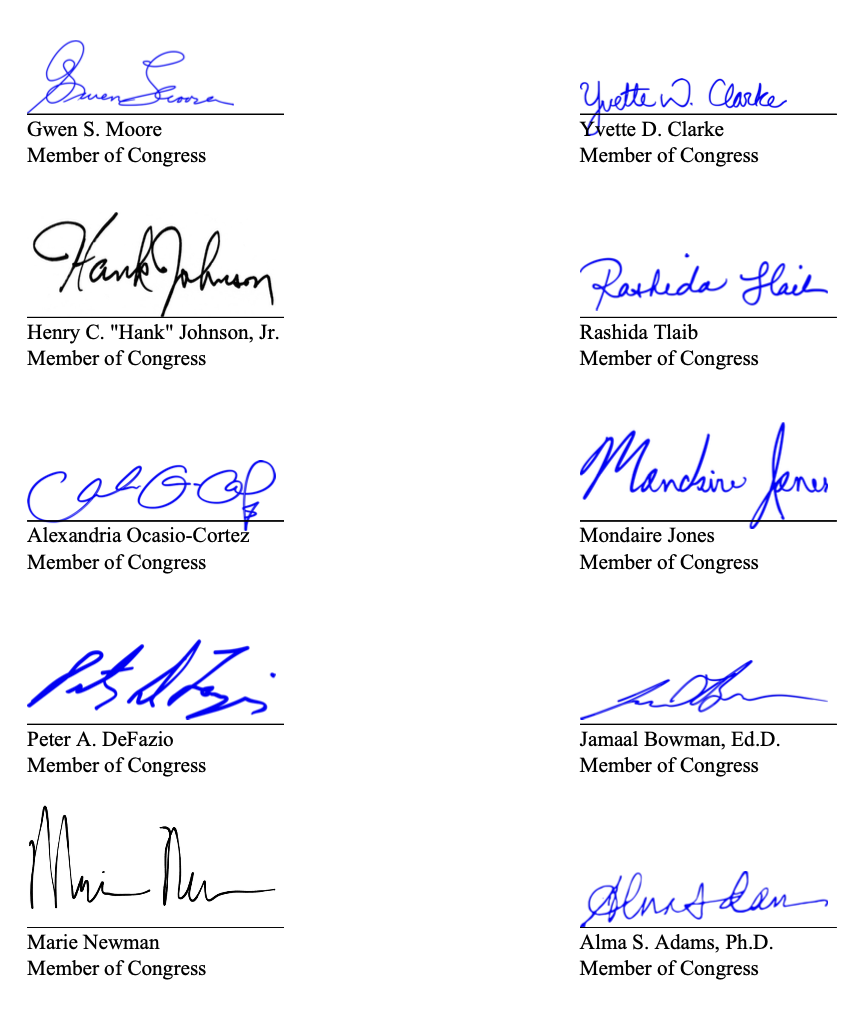 Gwen S Moore
Gwen S. Moore
Member of Congress
Yvette D. Clarke
Yvette D. Clarke
Member of Congress
Hank Johnson
Henry C. "Hank" Johnson, Jr.
Member of Congress
Rashida Tlaib
Rashida Tlaib
Member of Congress
Alexandria Ocasio-Cortez
Member of Congress
Mondaire Jones
Mondaire Jones
Member of Congress
Peter A. DeFazio
Member of Congress
Jamaal Bowman, Ed.D.
Member of Congress
Marie Newman
Member of Congress
Alma S Adams
Alma S. Adams, Ph.D.
Member of Congress